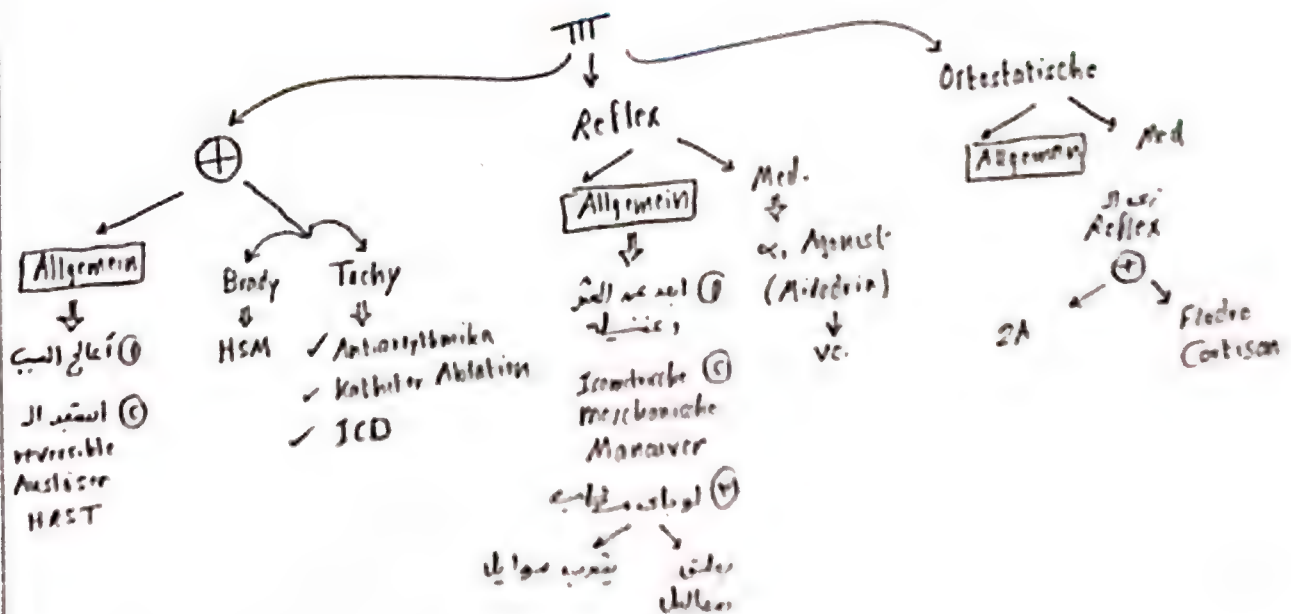 TTT
⊕
Allgemein
① أعالج السبب
② استبعد الـ
reversible
Auslöser
HRST
Brady
HSM
Tachy
✓ Antiarrythmika
✓ Katheter Ablation
✓ ICD
Reflex
Allgemein
①
Isometrische ②
Manauver
③
Med.
α₁ Agonist
(Midodrin)
VC.
Ortostatische
Allgemein
Med
زي الـ
Reflex
⊕
2A
Fludro
Cortison